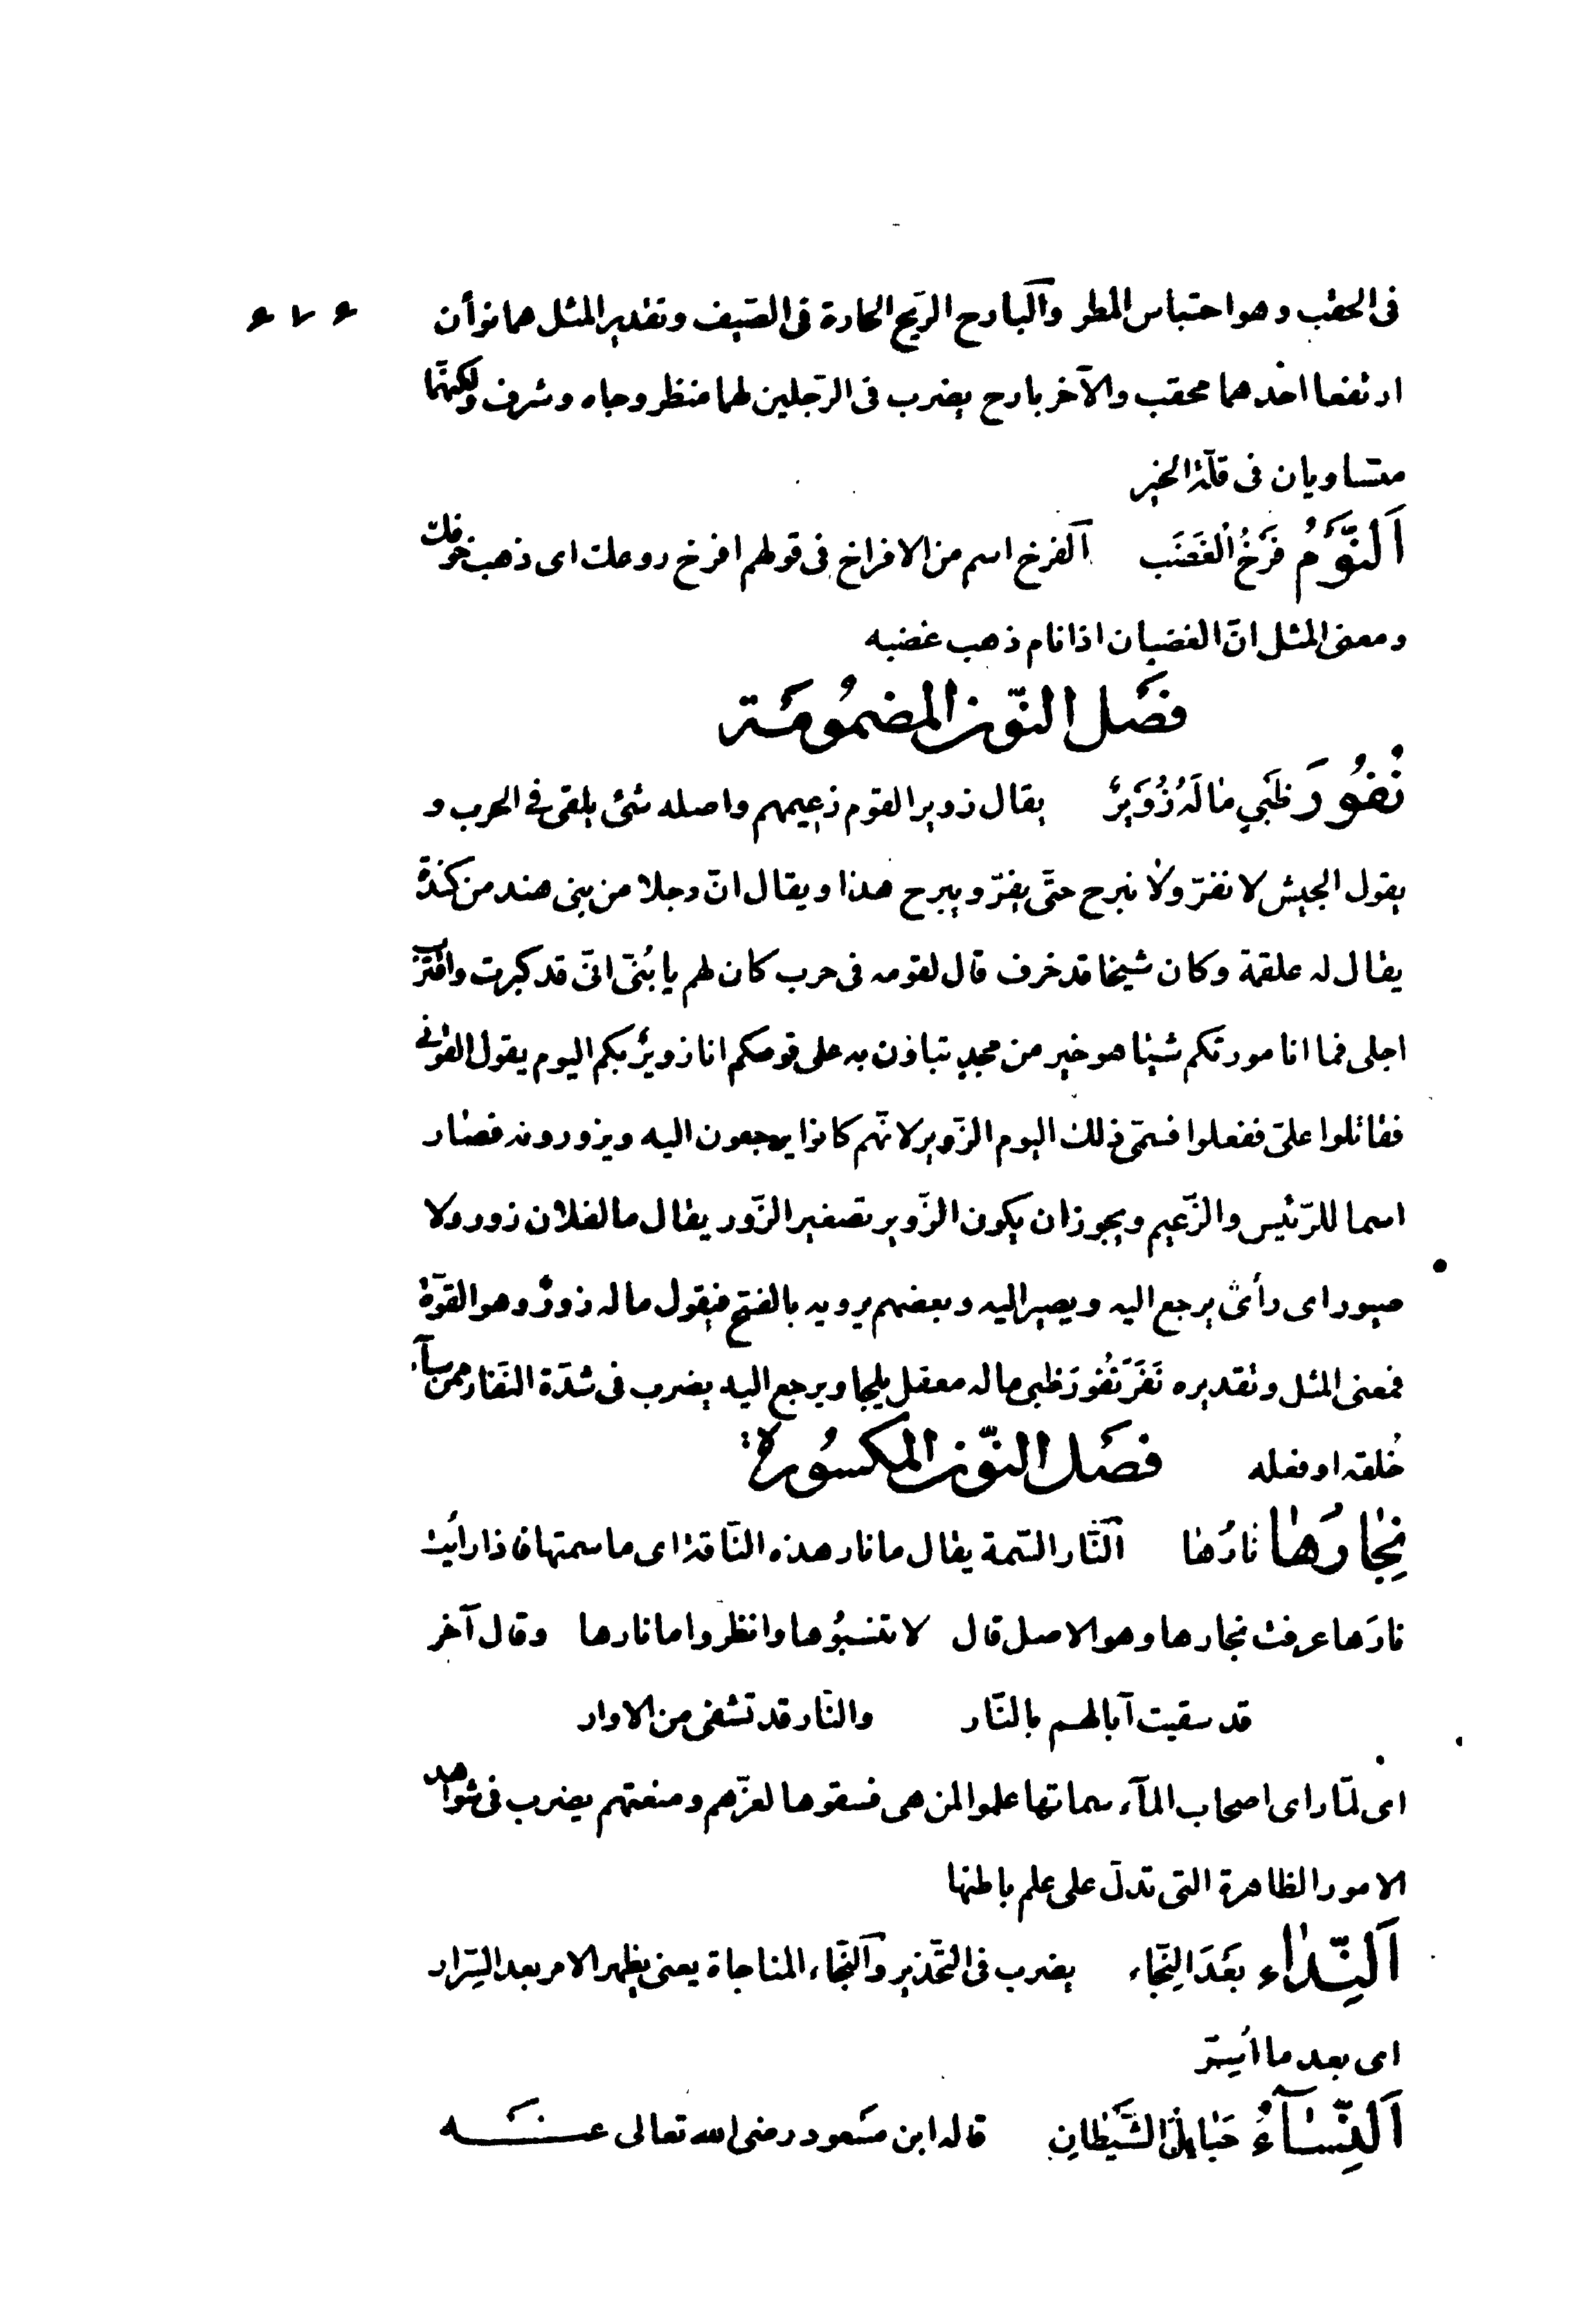 فى الحقب وهو احتباس المطر والبارح الريح الحارة فى الصّيف وتقدير المثل هما نوأن
٤٧٤
ارتفعا احدهما محقب والآخر بارح يضرب فى الرّجلين لهما منظر وجاه وشرف ولكنّهما
متساويان فى قلّة الخير
اَلنَّوْمُ فَرْخُ الْغَضَب الفرخ اسم من الافراخ فى قولهم افرخ روعك اى ذهب خوفك
ومعنى المثل انّ الغضبان اذا نام ذهب غضبه
فصل النّون المضمُومَة
نُفُورَ ظَبيٍ مٰا لَهُ زُوَيرٌ يقال زوير القوم زعيمهم واصله شئ يلقى فى الحرب و
يقول الجيش لا نفرّ ولا نبرح حتّى يفرّ ويبرح هذا ويقال انّ رجلا من بنى هند من كندة
يقال له علقمة وكان شيخا قد خرف قال لقومه فى حرب كان لهم يا بُنىّ انّى قد كبرت واقترب
اجلى فما انا مورثكم شيئا هو خير من مجدٍ تباذن به على قومكم انا زويرُكم اليوم يقول القونى
فقاتلوا علىّ ففعلوا فسمّى ذلك اليوم الزّوير لانّهم كانوا يرجعون اليه ويزورونه فصار
اسما للرّئيس والزّعيم ويجوز ان يكون الزّوير تصغير الزّور يقال ما لفلان زور ولا
صيور اى رأىٌ يرجع اليه ويصير اليه وبعضهم يرويه بالفتح فيقول ما له زورٌ وهو القوّة
فمعنى المثل وتقديره نَفَرَ نُفُورَ ظبى ما له معقل يلجا ويرجع اليه يضرب فى شدّة النفار ممن ساء
خُلقه او فعله فصل النّون المكسُورة
نِجٰارُهٰا نٰارُهٰا اَلنَّار السّمة يقال ما نار هذه النّاقة اى ما سمتها فاذا رأيت
نارَها عرفت نجارها وهو الاصل قال لا تنسبُوها وانظروا ما نارها وقال آخر
قد سقيت آبالهم بالنّار والنّار قد تشفى من الاوار
اى لمّا راى اصحاب المآء سماتها علموا لمن هى فسقوها لعزّهم ومنعتهم يضرب فى شواهد
الامور الظاهرة التى تدلّ على علم باطنها
اَلنِّدٰاء بَعْدَ النِّجٰاء يضرب فى التّحذير والنّجاء المناجاة يعنى يظهر الامر بعد السّرار
اى بعد ما اُسِرّ
اَلنِّسٰآءُ حَبٰائِلُ الشَّيْطٰانِ قاله ابن مسعود رضى الله تعالى عنه